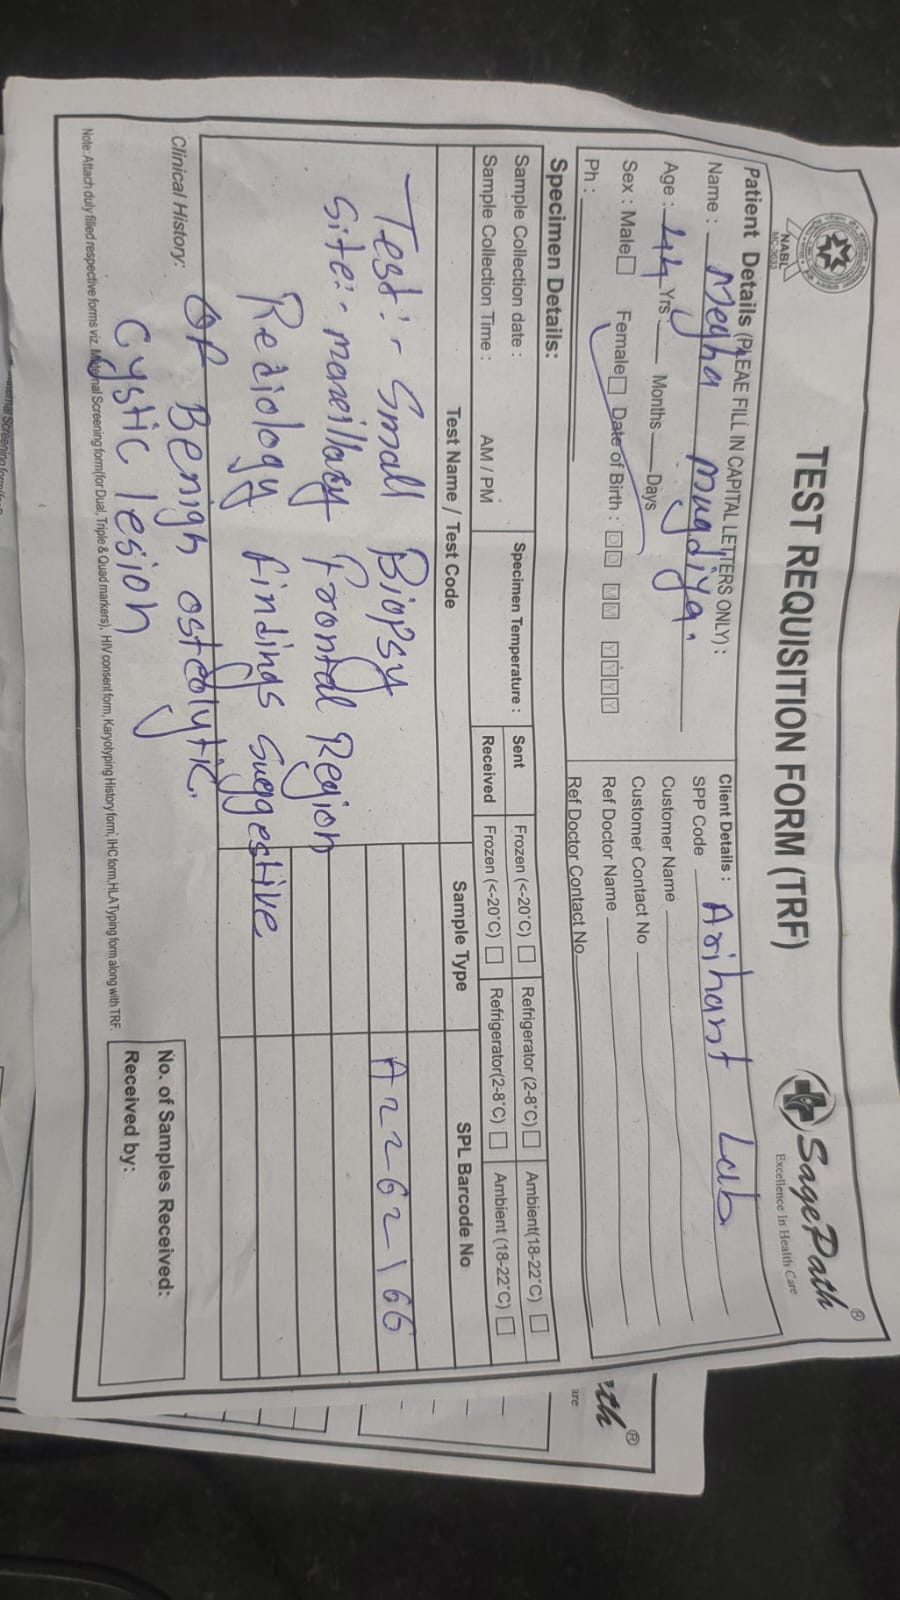 TEST REQUISITION FORM (TRF)
SagePath®
Excellence In Health Care
NABL
Patient Details (PLEAE FILL IN CAPITAL LETTERS ONLY) :
Name : Megha mugdiya.
Age : 44 Yrs. Months Days
Sex : Male Female Date of Birth : D D M M Y Y Y Y
Ph :
Client Details : Arihant Lab
SPP Code
Customer Name
Customer Contact No
Ref Doctor Name
Ref Doctor Contact No
Specimen Details:
Sample Collection date :
Sample Collection Time : AM / PM
Specimen Temperature :
Sent Frozen (<-20°C) Refrigerator (2-8°C) Ambient(18-22°C)
Received Frozen (<-20°C) Refrigerator(2-8°C) Ambient (18-22°C)
Test Name / Test Code Sample Type SPL Barcode No
Test :- Small Biopsy A2262166
Site :- maxillary frontal Region
Rediology findings suggestive
Clinical History: of Benigh osteolytic.
cystic lesion
No. of Samples Received:
Received by:
Note: Attach duly filled respective forms viz. Maternal Screening form(for Dual, Triple & Quad markers), HIV consent form, Karyotyping History form, IHC form, HLA Typing form along with TRF.